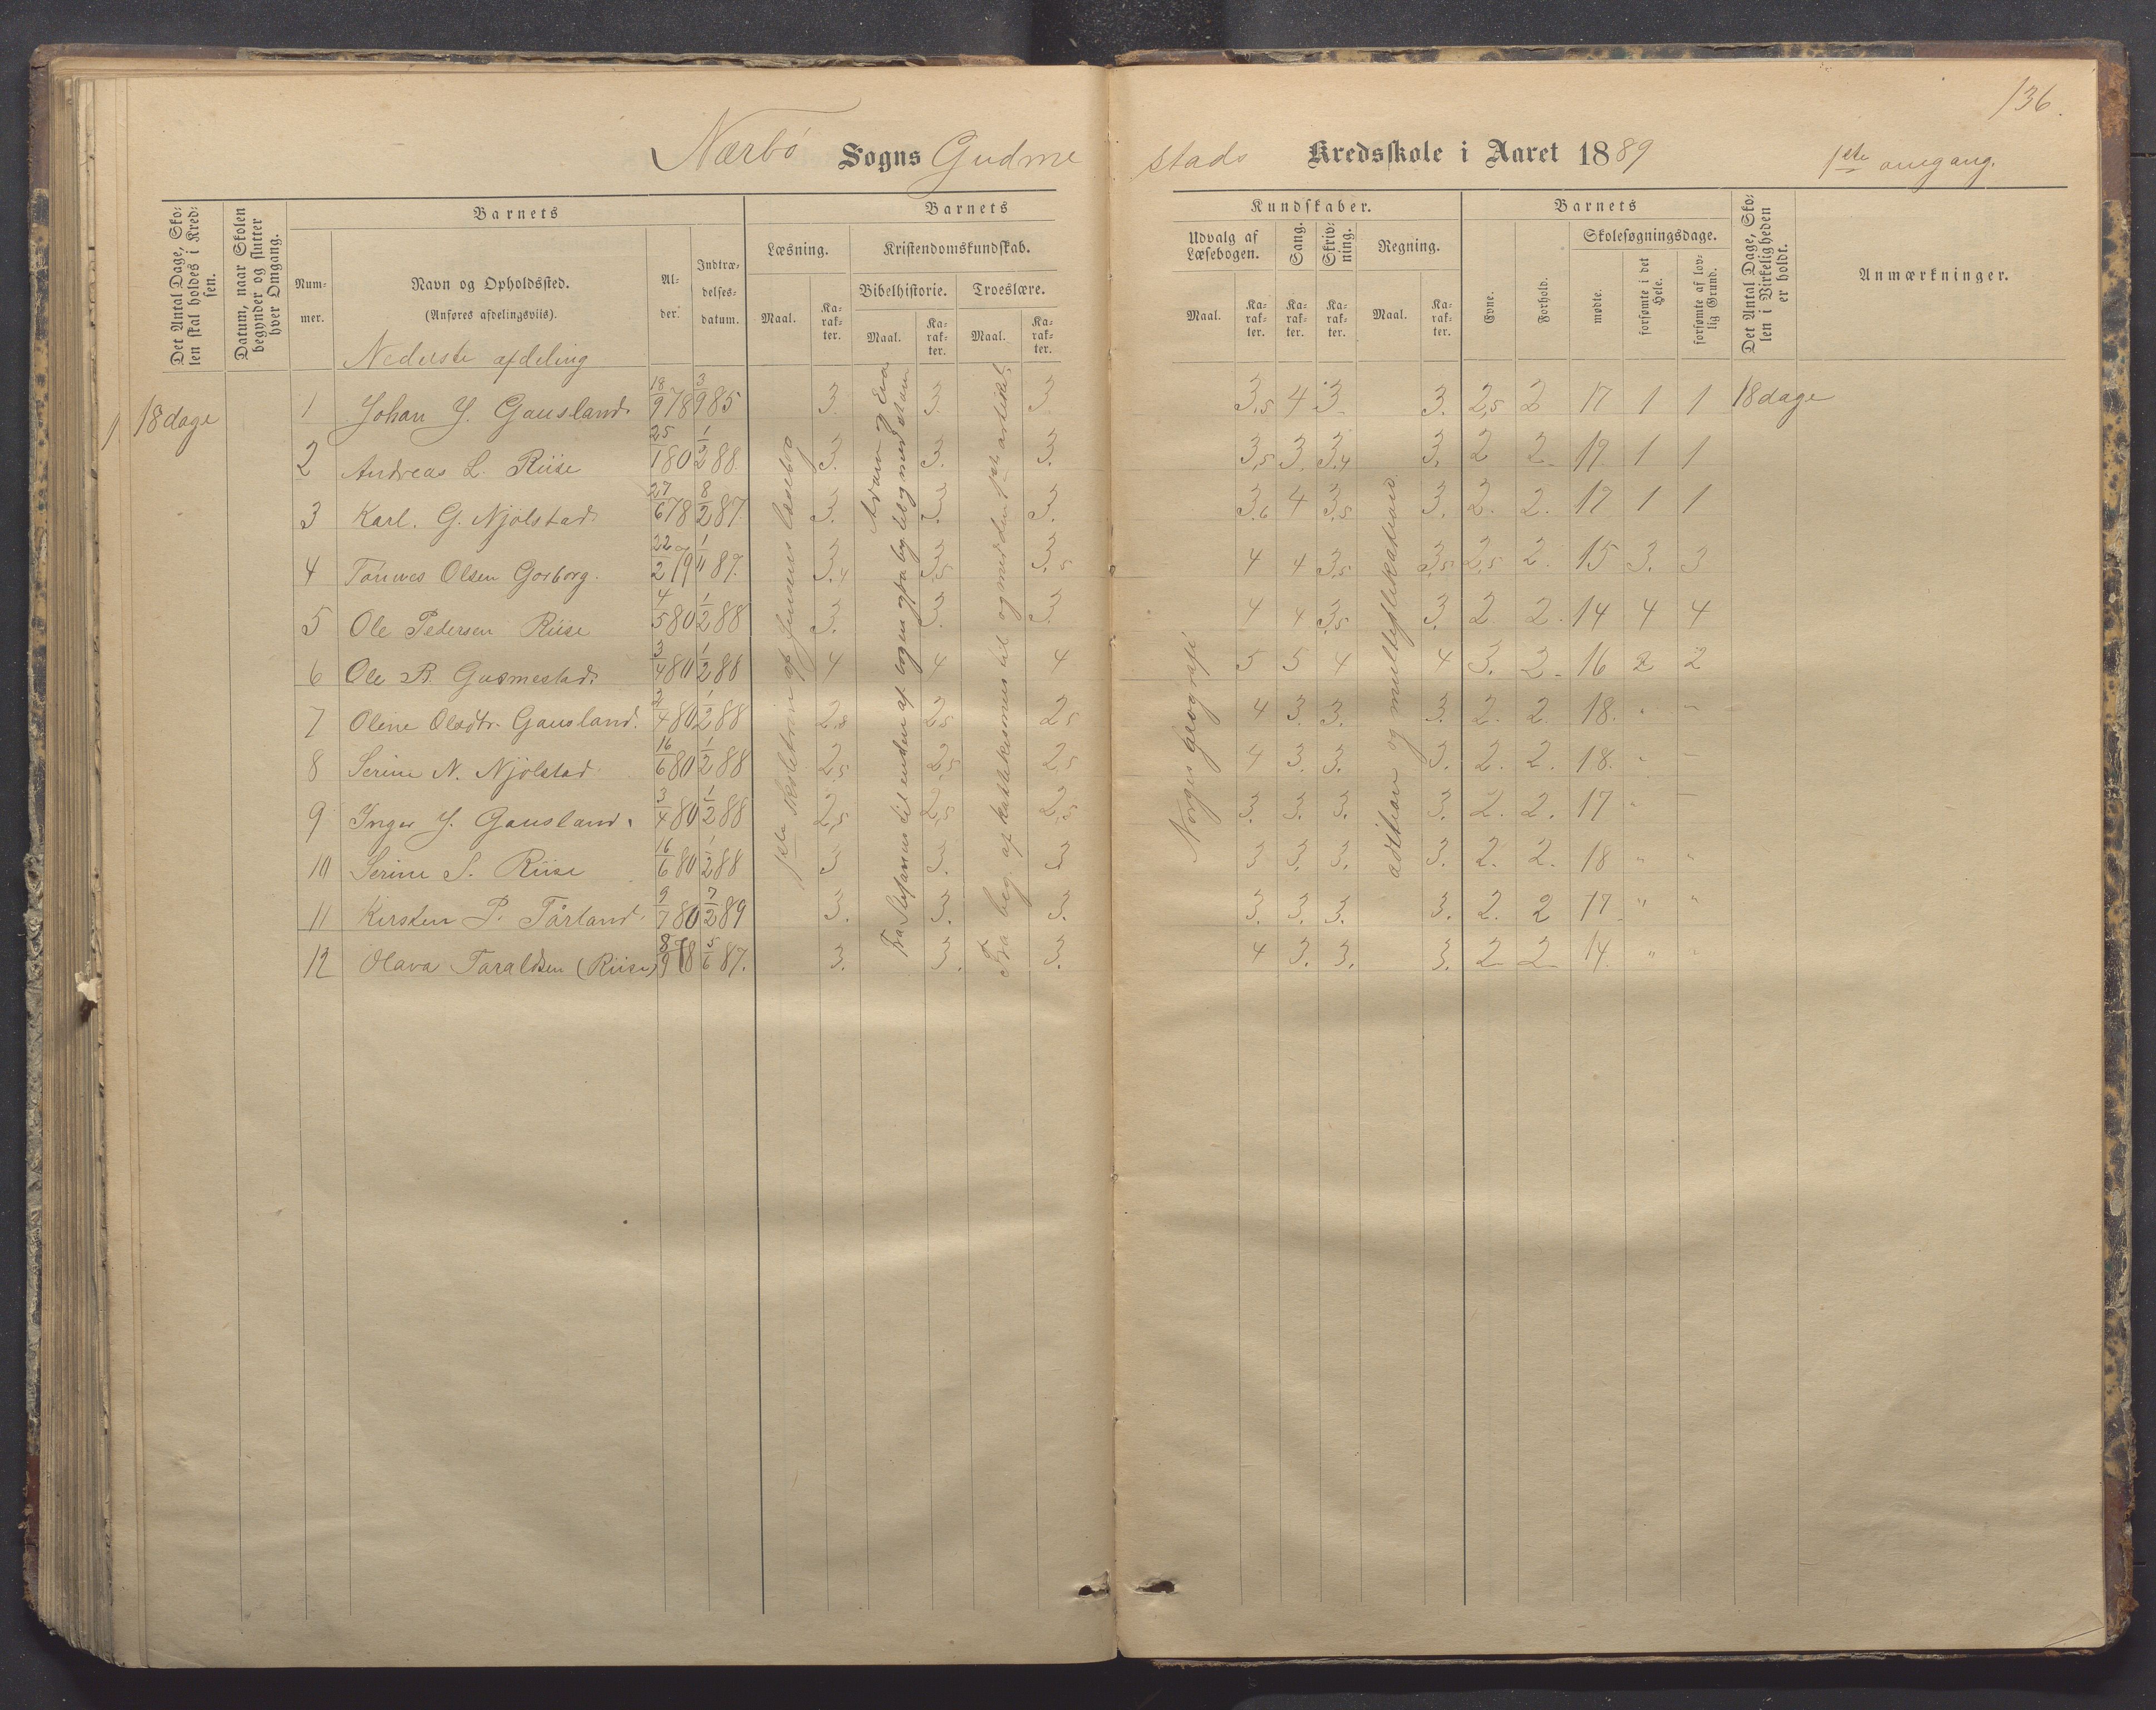 136.
Nærbö Sogns Gudmestads Kredsskole i Aaret 1889 1ste omgang.
Det Antal Dage, Skolen skal holdes i Kredsen.
Datum, naar Skolen begynder og slutter hver Omgang.
Barnets
Nummer.
Navn og Opholdssted.
(Anføres afdelingsviis).
Alder.
Indtrædelsesdatum.
Barnets Kundskaber.
Læsning.
Maal.
Karakter.
Kristendomskundskab.
Bibelhistorie.
Maal.
Karakter.
Troeslære.
Maal.
Karakter.
Udvalg af Læsebogen.
Maal.
Karakter.
Sang.
Karakter.
Skrivning.
Karakter.
Regning.
Maal.
Karakter.
Barnets
Evne.
Forhold.
Skolesøgningsdage.
mødte.
forsømte i det Hele.
forsømte af lovlig Grund.
Det Antal Dage, Skolen i Virkeligheden er holdt.
Anmærkninger.
Nederste afdeling
1 18 dage 1 Johan J. Gausland. 18/9 78 3/9 85 3. 3. 3 3,5 4 3 3. 2,5 2 17 1 1 18 dage
2 Andreas L. Riise 25/1 80 1/2 88. 3. 3. 3. 3,5 3. 3,4 3. 2 2. 17 1 1
3 Karl. G. Njølstad. 27/6 78 8/2 87. 3. 3. 3. 3,6 4 3,5 3. 2. 2. 17 1 1
4 Tönnes Olsen Gorborg. 22/2 79 1/11 87. 3,4 3,5 3,5 4 4 3,5 3,5 2,5 2. 15 3. 3
5 Ole Pedersen Riise 4/5 80 1/2 88 3. 3. 3. 4 4 3,5 3. 2 2. 14 4 4
6 Ole B. Gudmestad. 3/4 80 1/2 88 4 4 4 5 5 4 4 3. 2. 16 2 2
7 Oline Olsdtr. Gausland. 2/4 80 1/2 88 2,8 2,5 2,5 4 3. 3. 3. 2. 2. 18. " "
8 Serine N. Njölstad 16/6 80 1/2 88 2,5 2,5 2,5 4 3. 3. 3. 2. 2. 18. " "
9 Inger J. Gausland. 3/4 80 1/2 88 2,5 2,5 2,5 3. 3. 3. 3. 2. 2. 17 " "
10 Serine S. Riise 16/6 80 1/2 88 3 3. 3 3 3. 3. 3. 2. 2. 18 " "
11 Kirsten P. Tårland. 9/7 80 7/2 89 3. 3. 3. 3. 3. 3. 3. 2. 2 17. " "
12 Olava Taraldsen (Riise) 8/9 78 5/6 87. 3. 3. 3. 4 3. 3. 3. 2 2 14. " "
1ste skoletrin af Jensens læsebog
Adam og Eva
Fra Stefanus til enden af bogen og fra beg. til og med
Fra beg. af katekismus til og med den 1ste artikel.
Norges geografi
adition og multeplikations